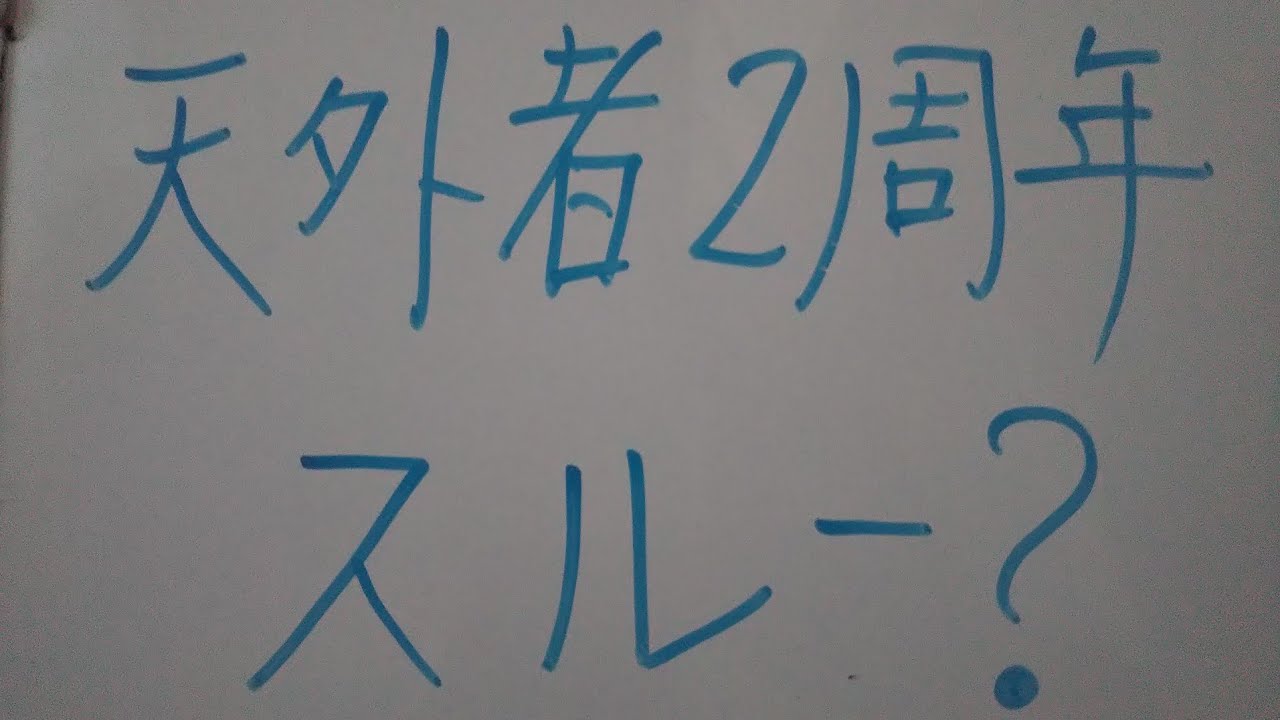 天外者2周年
スルー?